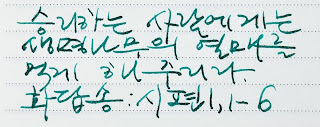 승리하는 사람에게는
생명나무의 열매를
먹게 해 주리라.
화답송 : 시편 1, 1-6